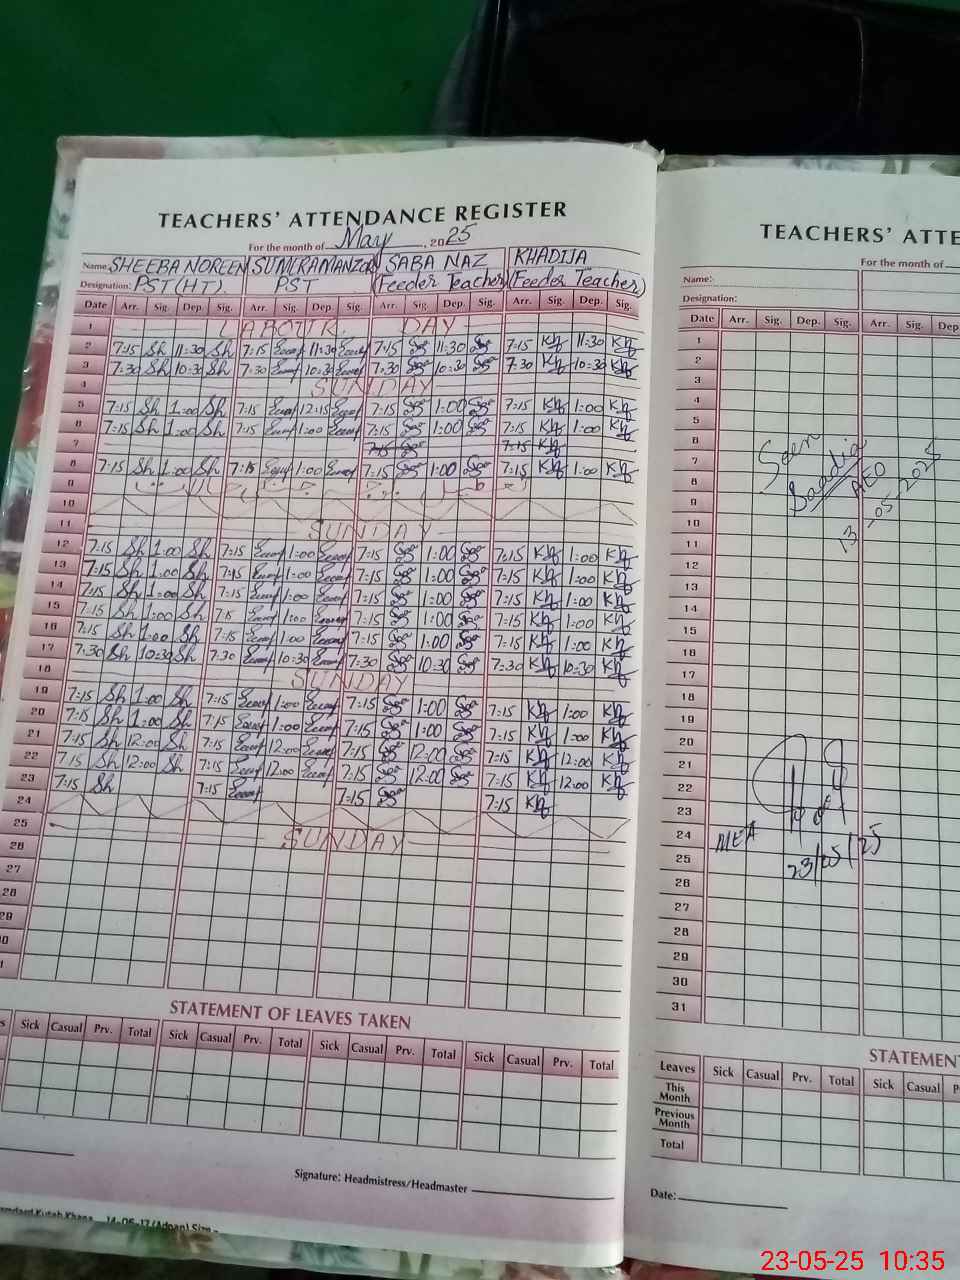 TEACHERS' ATTENDANCE REGISTER
For the month of May, 2025
Name: SHEEBA NOREEN SUMIRA MANZOOR SABA NAZ KHADIJA
Designation: PST(HT). PST (Feeder Teacher) (Feeder Teacher)
Date Arr. Sig. Dep. Sig. Arr. Sig. Dep. Sig. Arr. Sig. Dep. Sig. Arr. Sig. Dep. Sig.
1 LABOUR DAY
2 7:15 Sh 11:30 Sh 7:15 11:30 7:15 11:30 7:15 Kh 11:30 Kh
3 7:30 Sh 10:30 Sh 7:30 10:30 7:30 10:30 7:30 Kh 10:30 Kh
4 SUNDAY
5 7:15 Sh 1:00 Sh 7:15 12:15 7:15 1:00 7:15 Kh 1:00 Kh
6 7:15 Sh 1:00 Sh 7:15 1:00 7:15 1:00 7:15 Kh 1:00 Kh
7 7:15 7:15 Kh
8 7:15 Sh 1:00 Sh 7:15 1:00 7:15 1:00 7:15 Kh 1:00 Kh
9
10
11 SUNDAY
12 7:15 Sh 1:00 Sh 7:15 1:00 7:15 1:00 7:15 Kh 1:00 Kh
13 7:15 Sh 1:00 Sh 7:15 1:00 7:15 1:00 7:15 Kh 1:00 Kh
14 7:15 Sh 1:00 Sh 7:15 1:00 7:15 1:00 7:15 Kh 1:00 Kh
15 7:15 Sh 1:00 Sh 7:15 1:00 7:15 1:00 7:15 Kh 1:00 Kh
16 7:15 Sh 1:00 Sh 7:15 1:00 7:15 1:00 7:15 Kh 1:00 Kh
17 7:30 Sh 10:30 Sh 7:30 10:30 7:30 10:30 7:30 Kh 10:30 Kh
18 SUNDAY
19 7:15 Sh 1:00 Sh 7:15 1:00 7:15 1:00 7:15 Kh 1:00 Kh
20 7:15 Sh 1:00 Sh 7:15 1:00 7:15 1:00 7:15 Kh 1:00 Kh
21 7:15 Sh 12:00 Sh 7:15 12:00 7:15 12:00 7:15 Kh 12:00 Kh
22 7:15 Sh 12:00 Sh 7:15 12:00 7:15 12:00 7:15 Kh 12:00 Kh
23 7:15 Sh 7:15 7:15 7:15 Kh
24
25 SUNDAY
26
27
28
29
30
STATEMENT OF LEAVES TAKEN
Sick Casual Prv. Total Sick Casual Prv. Total Sick Casual Prv. Total Sick Casual Prv. Total
Signature: Headmistress/Headmaster
TEACHERS' ATTE
For the month of
Name:
Designation:
Date Arr. Sig. Dep. Sig. Arr. Sig. Dep
1
2
3
4
5
6
7
8
9
10
11
12
13
14
15
16
17
18
19
20
21
22
23
24
25
26
27
28
29
30
31
Seen
Saadia
AEO
13-05-2025
MEA
23/05/25
STATEMENT
Leaves Sick Casual Prv. Total Sick Casual P
This Month
Previous Month
Total
Date:
23-05-25 10:35